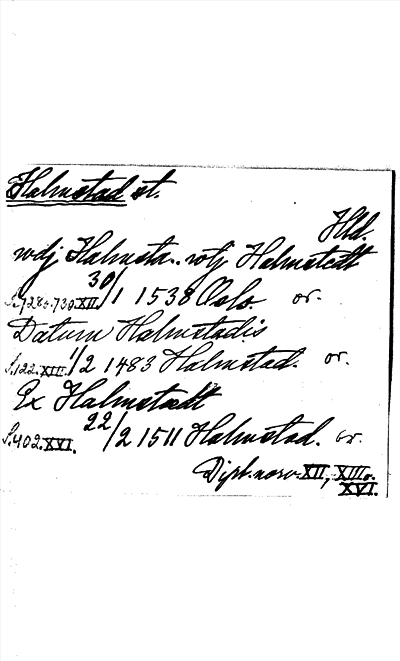 Halmstad st.
Hld.
wdj Halmsta.. wtj Halmstedt
S. 728 o. 730. XII. 30/1 1538 Oslo. or.
Datum Halmstadis
S. 122. XIII. 1/2 1483 Halmstad. or.
Ex Halmstadt
S. 402. XVI. 22/2 1511 Halmstad. or.
Dipl. norv. XII, XIII o.
XVI.